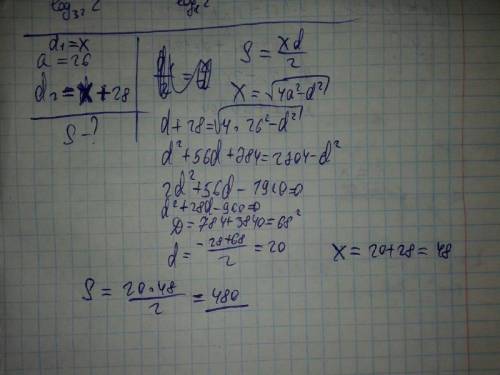 log₃₂ 2
d₁ = x
a = 26
d₂ = x + 28
S - ?
S = xd/2
x = √(4a² - d²)
d + 28 = √(4 · 26² - d²)
d² + 56d + 784 = 2704 - d²
2d² + 56d - 1920 = 0
d² + 28d - 960 = 0
D = 784 + 3840 = 68²
d = (-28 + 68)/2 = 20
x = 20 + 28 = 48
S = (20 · 48)/2 = 480